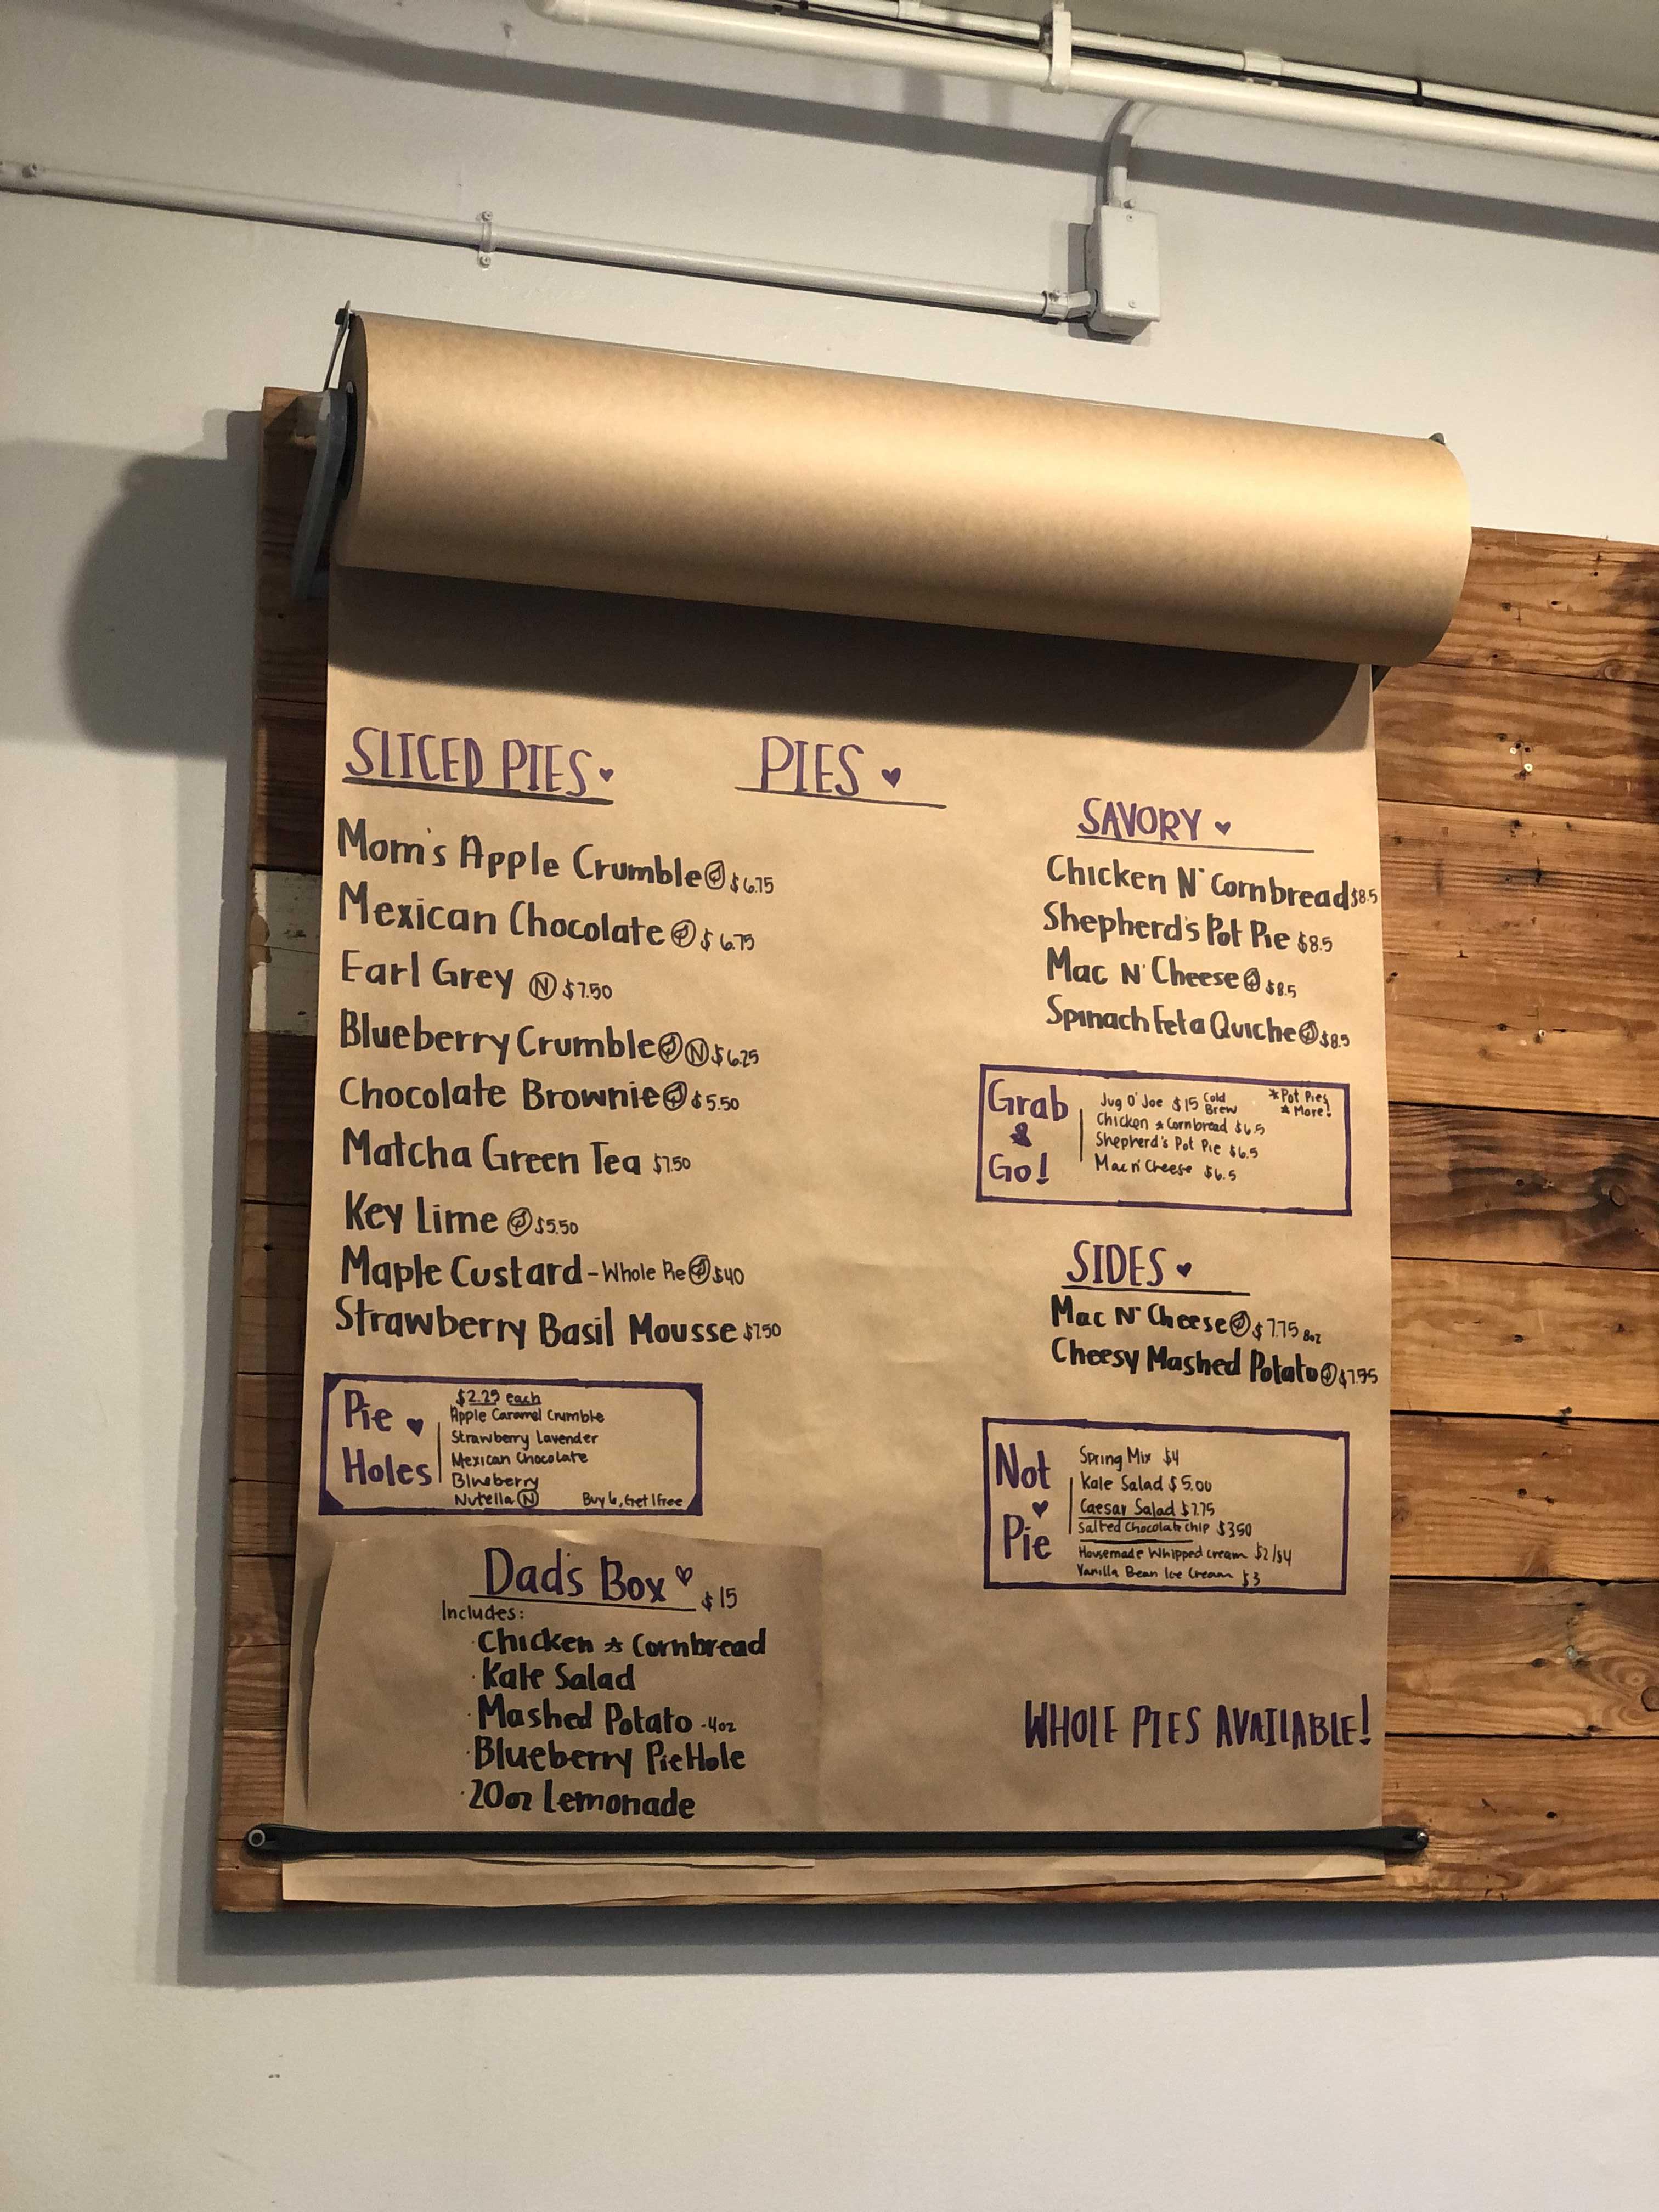 SLICED PIES
Mom's Apple Crumble $6.75
Mexican Chocolate $6.75
Earl Grey Ⓝ $7.50
Blueberry Crumble Ⓝ $6.25
Chocolate Brownie $5.50
Matcha Green Tea $7.50
Key Lime $5.50
Maple Custard - Whole Pie $40
Strawberry Basil Mousse $7.50
Pie ♥ Holes
$2.25 each
Apple Caramel Crumble
Strawberry Lavender
Mexican Chocolate
Blueberry
Nutella Ⓝ
Buy 6, Get 1 Free
Dad's Box ♡ $15
Includes:
· Chicken & Cornbread
· Kale Salad
· Mashed Potato - 4oz
· Blueberry PieHole
· 20oz Lemonade
PIES ♥
SAVORY ♥
Chicken N' Cornbread $8.5
Shepherd's Pot Pie $8.5
Mac N' Cheese $8.5
Spinach Feta Quiche $8.5
Grab & Go!
Jug O' Joe $15 Cold Brew
*Pot Pies & More!
Chicken & Cornbread $6.5
Shepherd's Pot Pie $6.5
Mac n' Cheese $6.5
SIDES ♥
Mac N' Cheese $7.75 8oz
Cheesy Mashed Potato
Not ♥ Pie
Spring Mix $4
Kale Salad $5.00
Caesar Salad $7.75
Salted Chocolate Chip $3.50
Housemade Whipped Cream $2/$4
Vanilla Bean Ice Cream $3
WHOLE PIES AVAILABLE!